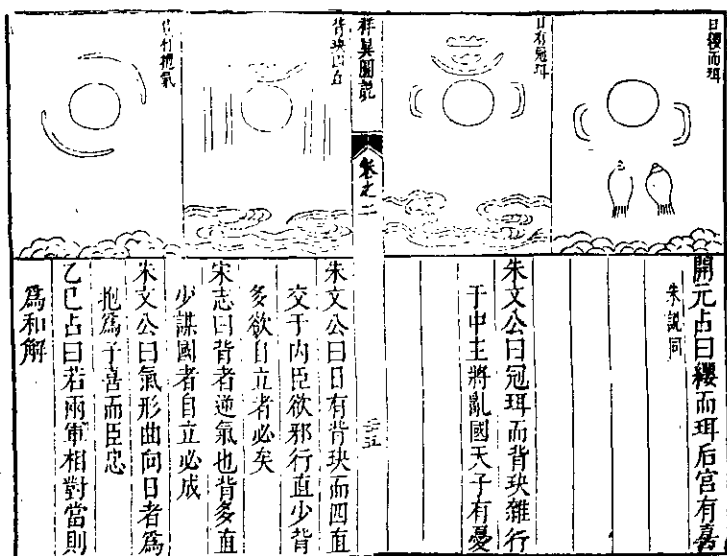 日纓而珥
開元占曰纓而珥后宫有喜
朱説同
日有冠珥
朱文公曰冠珥而背玦雜行
于中主將亂國天子有憂
祥異圖説
卷之二
三五
背玦四直
朱文公曰日有背玦而四直
交于内臣欲邪行直少背
多欲自立者必矣
宋志曰背者逆氣也背多直
少謀國者自立必成
抱氣
朱文公曰氣形曲向日者爲
抱爲子喜而臣忠
乙巳占曰若兩軍相對當則
爲和解